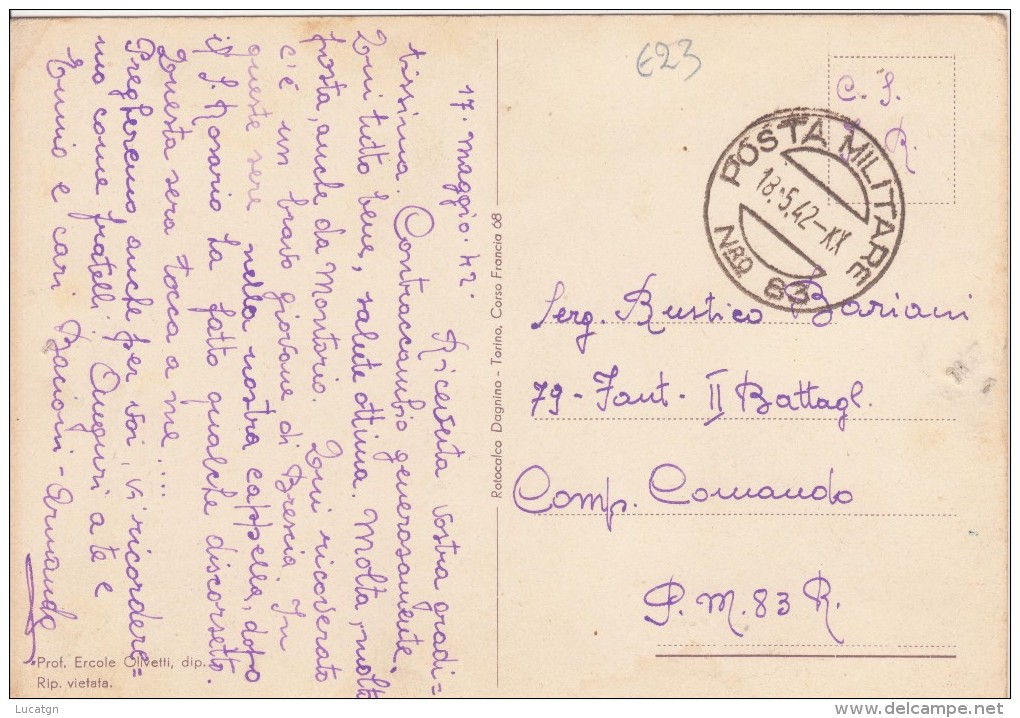 17. maggio. 42.
Ricevuta vostra gradi=
tissima. Contraccambio generosamente.
Qui tutto bene, salute ottima. Molta, molta
posta, anche da Montorio. Qui ricoverato
c'è un bravo giovane di Brescia. In
queste sere nella nostra cappella, dopo
il S. Rosario ha fatto qualche discorsetto.
Questa sera tocca a me....
Pregheremo anche per voi, vi ricordere=
mo come fratelli. Auguri a te e
Ennio e cari Bacioni - Armando
Prof. Ercole Olivetti, dip.
Rip. vietata.
Rotocalco Dagnino - Torino, Corso Francia 68
E23
C. S.
I. R.
POSTA MILITARE
18.5.42-XX
NRO. 83
Serg. Rustico Bariani
79 - Fant. II Battagl.
Comp. Comando
P. M. 83 R.
Lucatgn
delcampe.net